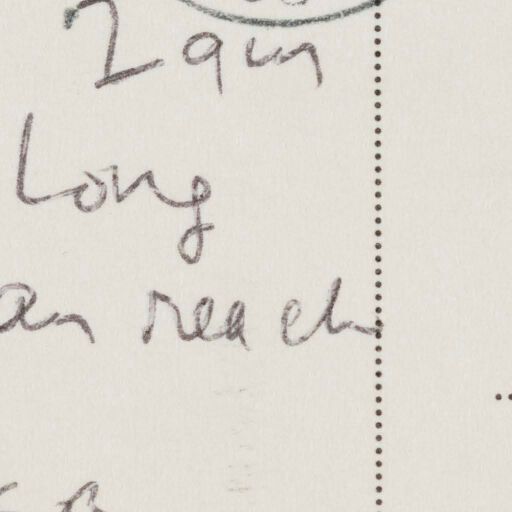 I am
long
an reach